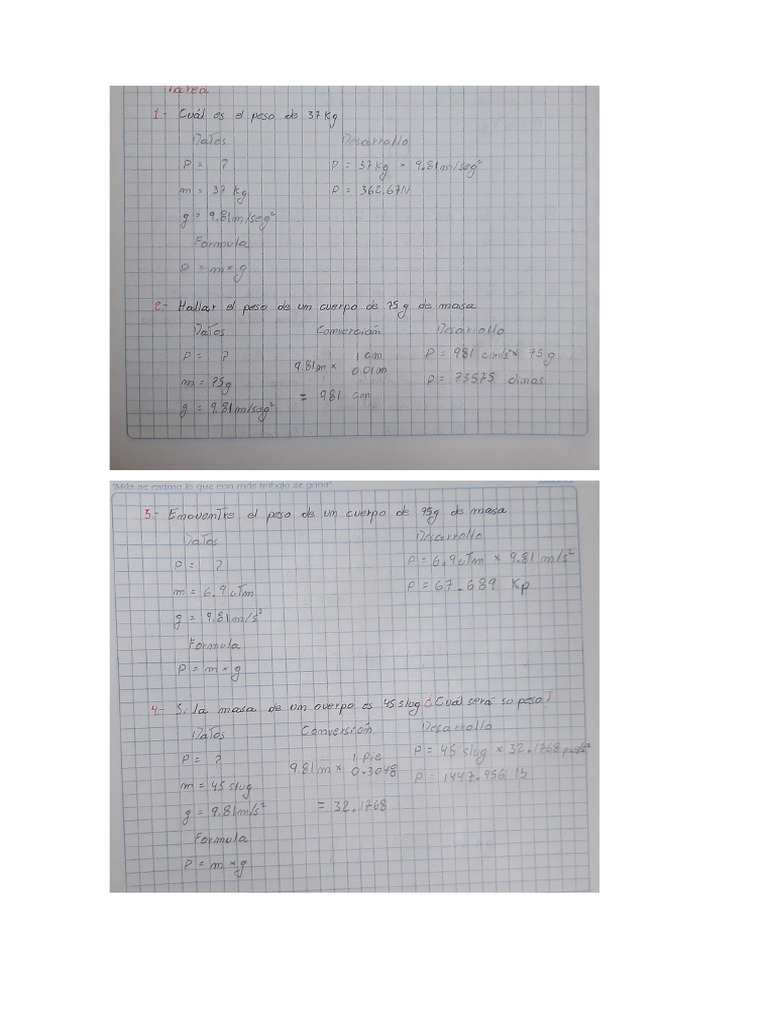 Tarea
1.- Cuál es el peso de 37 Kg
Datos Desarrollo
P = ? P = 37 Kg × 9.81 m/seg²
m = 37 Kg P = 362.67 N
g = 9.81 m/seg²
Formula
P = m × g
2.- Hallar el peso de un cuerpo de 75 g de masa
Datos Converción Desarrollo
P = ? 9.81 m × 1 cm / 0.01 m P = 981 cm/s² × 75 g
m = 75g = 981 cm P = 73575 dinas
g = 9.81 m/seg²
"Más se estima lo que con más trabajo se gana"
3.- Encuentre el peso de un cuerpo de 75g de masa
Datos Desarrollo
P = ? P = 6.9 utm × 9.81 m/s²
m = 6.9 utm P = 67.689 Kp
g = 9.81 m/s²
Formula
P = m × g
4.- Si la masa de un cuerpo es 45 slug ¿Cuál será su peso?
Datos Conversión Desarrollo
P = ? 9.81 m × 1 pie / 0.3048 P = 45 slug × 32.1768 pie/s²
m = 45 slug = 32.1768 P = 1447.956 lb
g = 9.81 m/s²
Formula
P = m × g